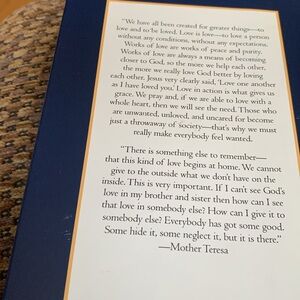 "We have all been created for greater things—to
love and to be loved. Love is love—to love a person
without any conditions, without any expectations.
Works of love are works of peace and purity.
Works of love are always a means of becoming
closer to God, so the more we help each other,
the more we really love God better by loving
each other. Jesus very clearly said, 'Love one another
as I have loved you.' Love in action is what gives us
grace. We pray and, if we are able to love with a
whole heart, then we will see the need. Those who
are unwanted, unloved, and uncared for become
just a throwaway of society—that's why we must
really make everybody feel wanted.
"There is something else to remember—
that this kind of love begins at home. We cannot
give to the outside what we don't have on the
inside. This is very important. If I can't see God's
love in my brother and sister then how can I see
that love in somebody else? How can I give it to
somebody else? Everybody has got some good.
Some hide it, some neglect it, but it is there."
—Mother Teresa